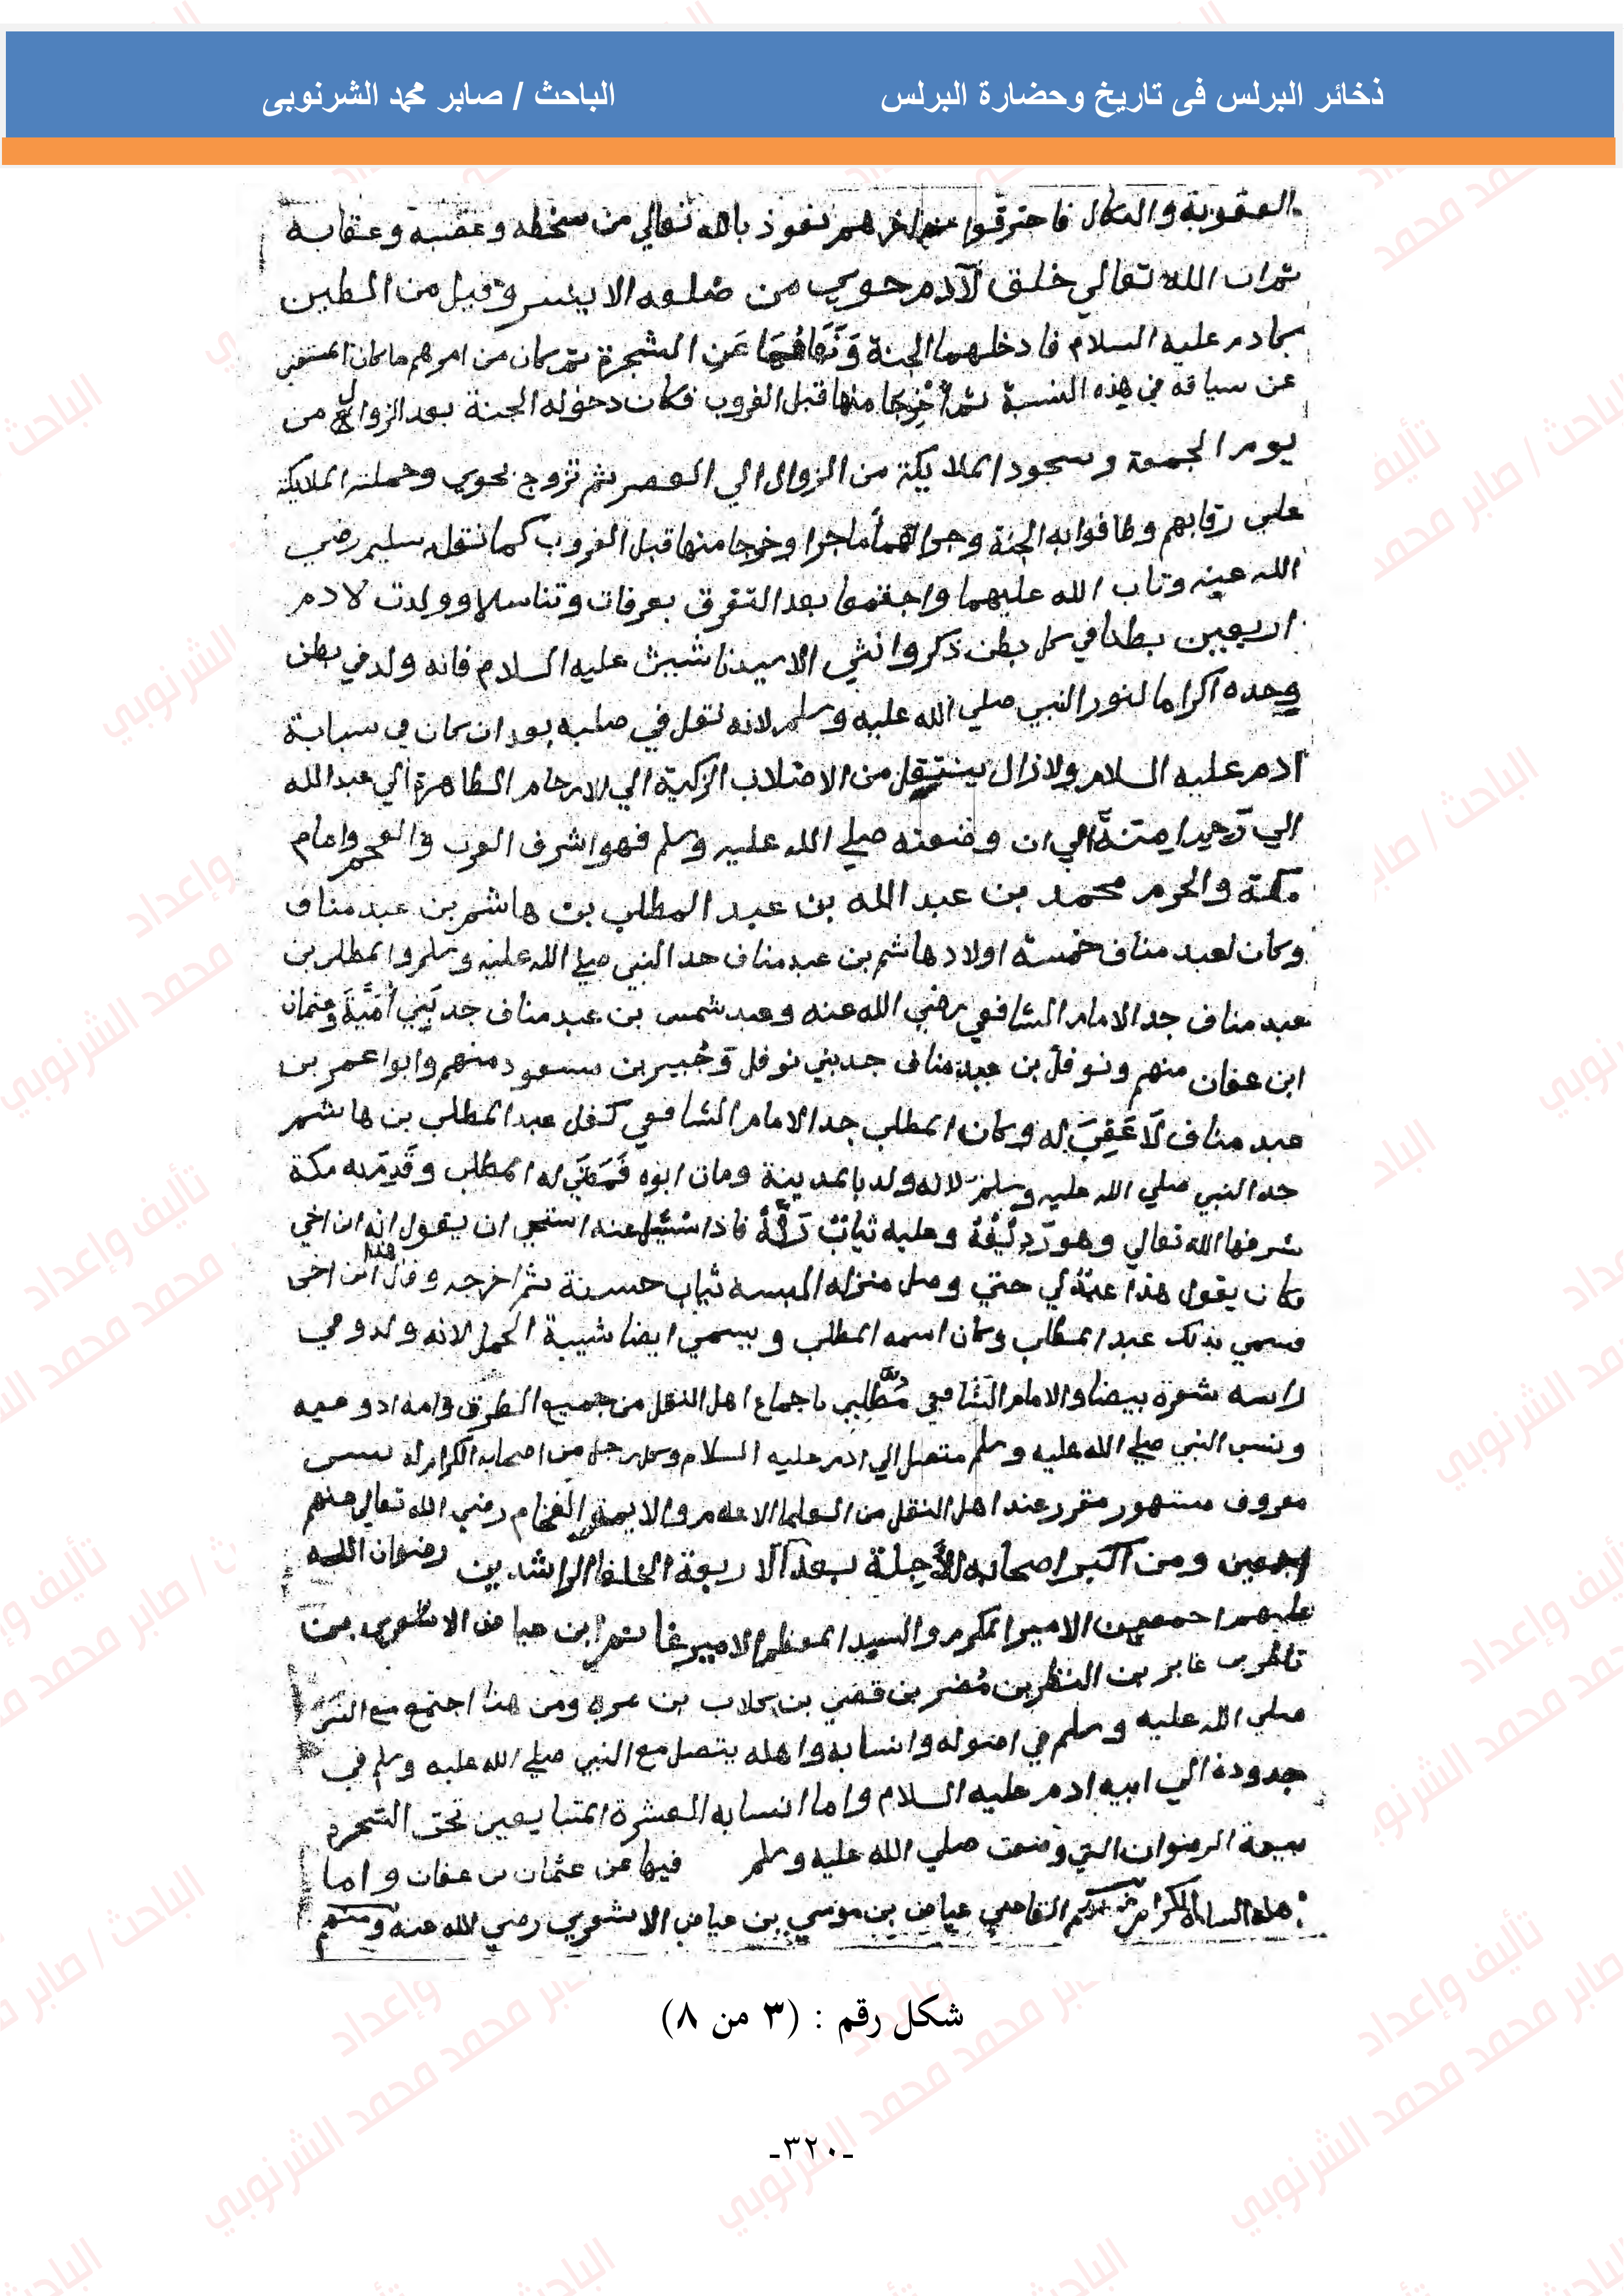 ذخائر البرلس فى تاريخ وحضارة البرلس
الباحث / صابر محمد الشرنوبى
العقوبة والنكال فاحترقوا عن اخرهم نعوذ بالله تعالي من سخطه وغضبه وعقابه
ثم ان الله تعالي خلق لآدم حوي من ضلعه الايسر وقيل من الطين
كادم عليه السلام فادخلهما الجنة ونهاهما عن الشجرة ثم كان من امرهم ما كان
عن سياقه في هذه النسبة ثم أخرجا منها قبل الغروب فكان دخوله الجنة بعد الزوال من
يوم الجمعة وسجود الملايكة من الزوال الي العصر ثم تزوج بحوي وحملته الملايكة
علي رقابهم وطافوا به الجنة وجرا لهما ما جرا وخرجا منها قبل الغروب كما نقله سليم رضي
الله عنه وتاب الله عليهما واجتمعا بعد التفرق بعرفات وتناسلا وولدت لادم
اربعين بطنا في كل بطن ذكر وانثي الا سيدنا شيث عليه السلام فانه ولد في بطن
وحده اكراما لنور النبي صلي الله عليه وسلم لانه نقل في صلبه بعد ان كان في سبابة
ادم عليه السلام ولا زال ينتقل من الاصلاب الزكية الي الارحام الطاهرة الي عبد الله
الي ان وضعته صلي الله عليه وسلم فهو اشرف العرب والعجم وامام
مكة والحرم محمد بن عبد الله بن عبد المطلب بن هاشم بن عبد مناف
وكان لعبد مناف خمسة اولاد هاشم بن عبد مناف جد النبي صلي الله عليه وسلم والمطلب بن
عبد مناف جد الامام الشافعي رضي الله عنه وعبد شمس بن عبد مناف جد بني أمية وعثمان
ابن عفان منهم ونوفل بن عبد مناف جد بني نوفل وجبير بن مسعود منهم وابو اعمر بن
عبد مناف لا عقب له وكان المطلب جد الامام الشافعي كفل عبد المطلب بن هاشم
جد النبي صلي الله عليه وسلم لانه ولد بالمدينة ومات ابوه له المطلب وقدم به مكة
شرفها الله تعالي وهو رديفه وعليه ثياب رثة فاذا سئل عنه استحي ان يقول انه ابن اخي
فكان يقول هذا عبد لي حتي وصل منزله البسه ثياب حسنة ثم اخرجه وقال هذا ابن اخي
فسمي بذلك عبد المطلب وكان اسمه المطلب ويسمي ايضا شيبة الحمد لانه ولد وفي
راسه شعرة بيضا والامام الشافعي مطلبي باجماع اهل النقل من جميع الطرق وامه
ونسب النبي صلي الله عليه وسلم متصل الي ادم عليه السلام وكل رجل من اصحابه الكرام له نسب
معروف مشهور مقرر عند اهل النقل من العلما الاعلام والايمة الفخام رضي الله تعالي عنهم
اجمعين ومن اكبر اصحابه الأجلة بعد الاربعة الخلفا الراشدين رضوان الله
عليهم اجمعين الامير المكرم والسيد المعظم الامير غانم ابن عياض الاشعري بن
بن النظر بن مضر بن قصي بن كلاب بن مره ومن هنا اجتمع مع النبي
صلي الله عليه وسلم في اصوله وانسابه واهله يتصل مع النبي صلي الله عليه وسلم في
جدوده الي ابيه ادم عليه السلام واما انسابه العشرة المتبايعين تحت الشجرة
بيعة الرضوان التي وضعت صلي الله عليه وسلم فيها عن عثمان بن عفان واما
هذه السادة الكرام القاضي عياض بن موسي بن عياض الاشعري رضي الله عنه ومنهم
شكل رقم : (٣ من ٨)
-٣٢٠-
تأليف وإعداد
الباحث / صابر محمد محمد الشرنوبي